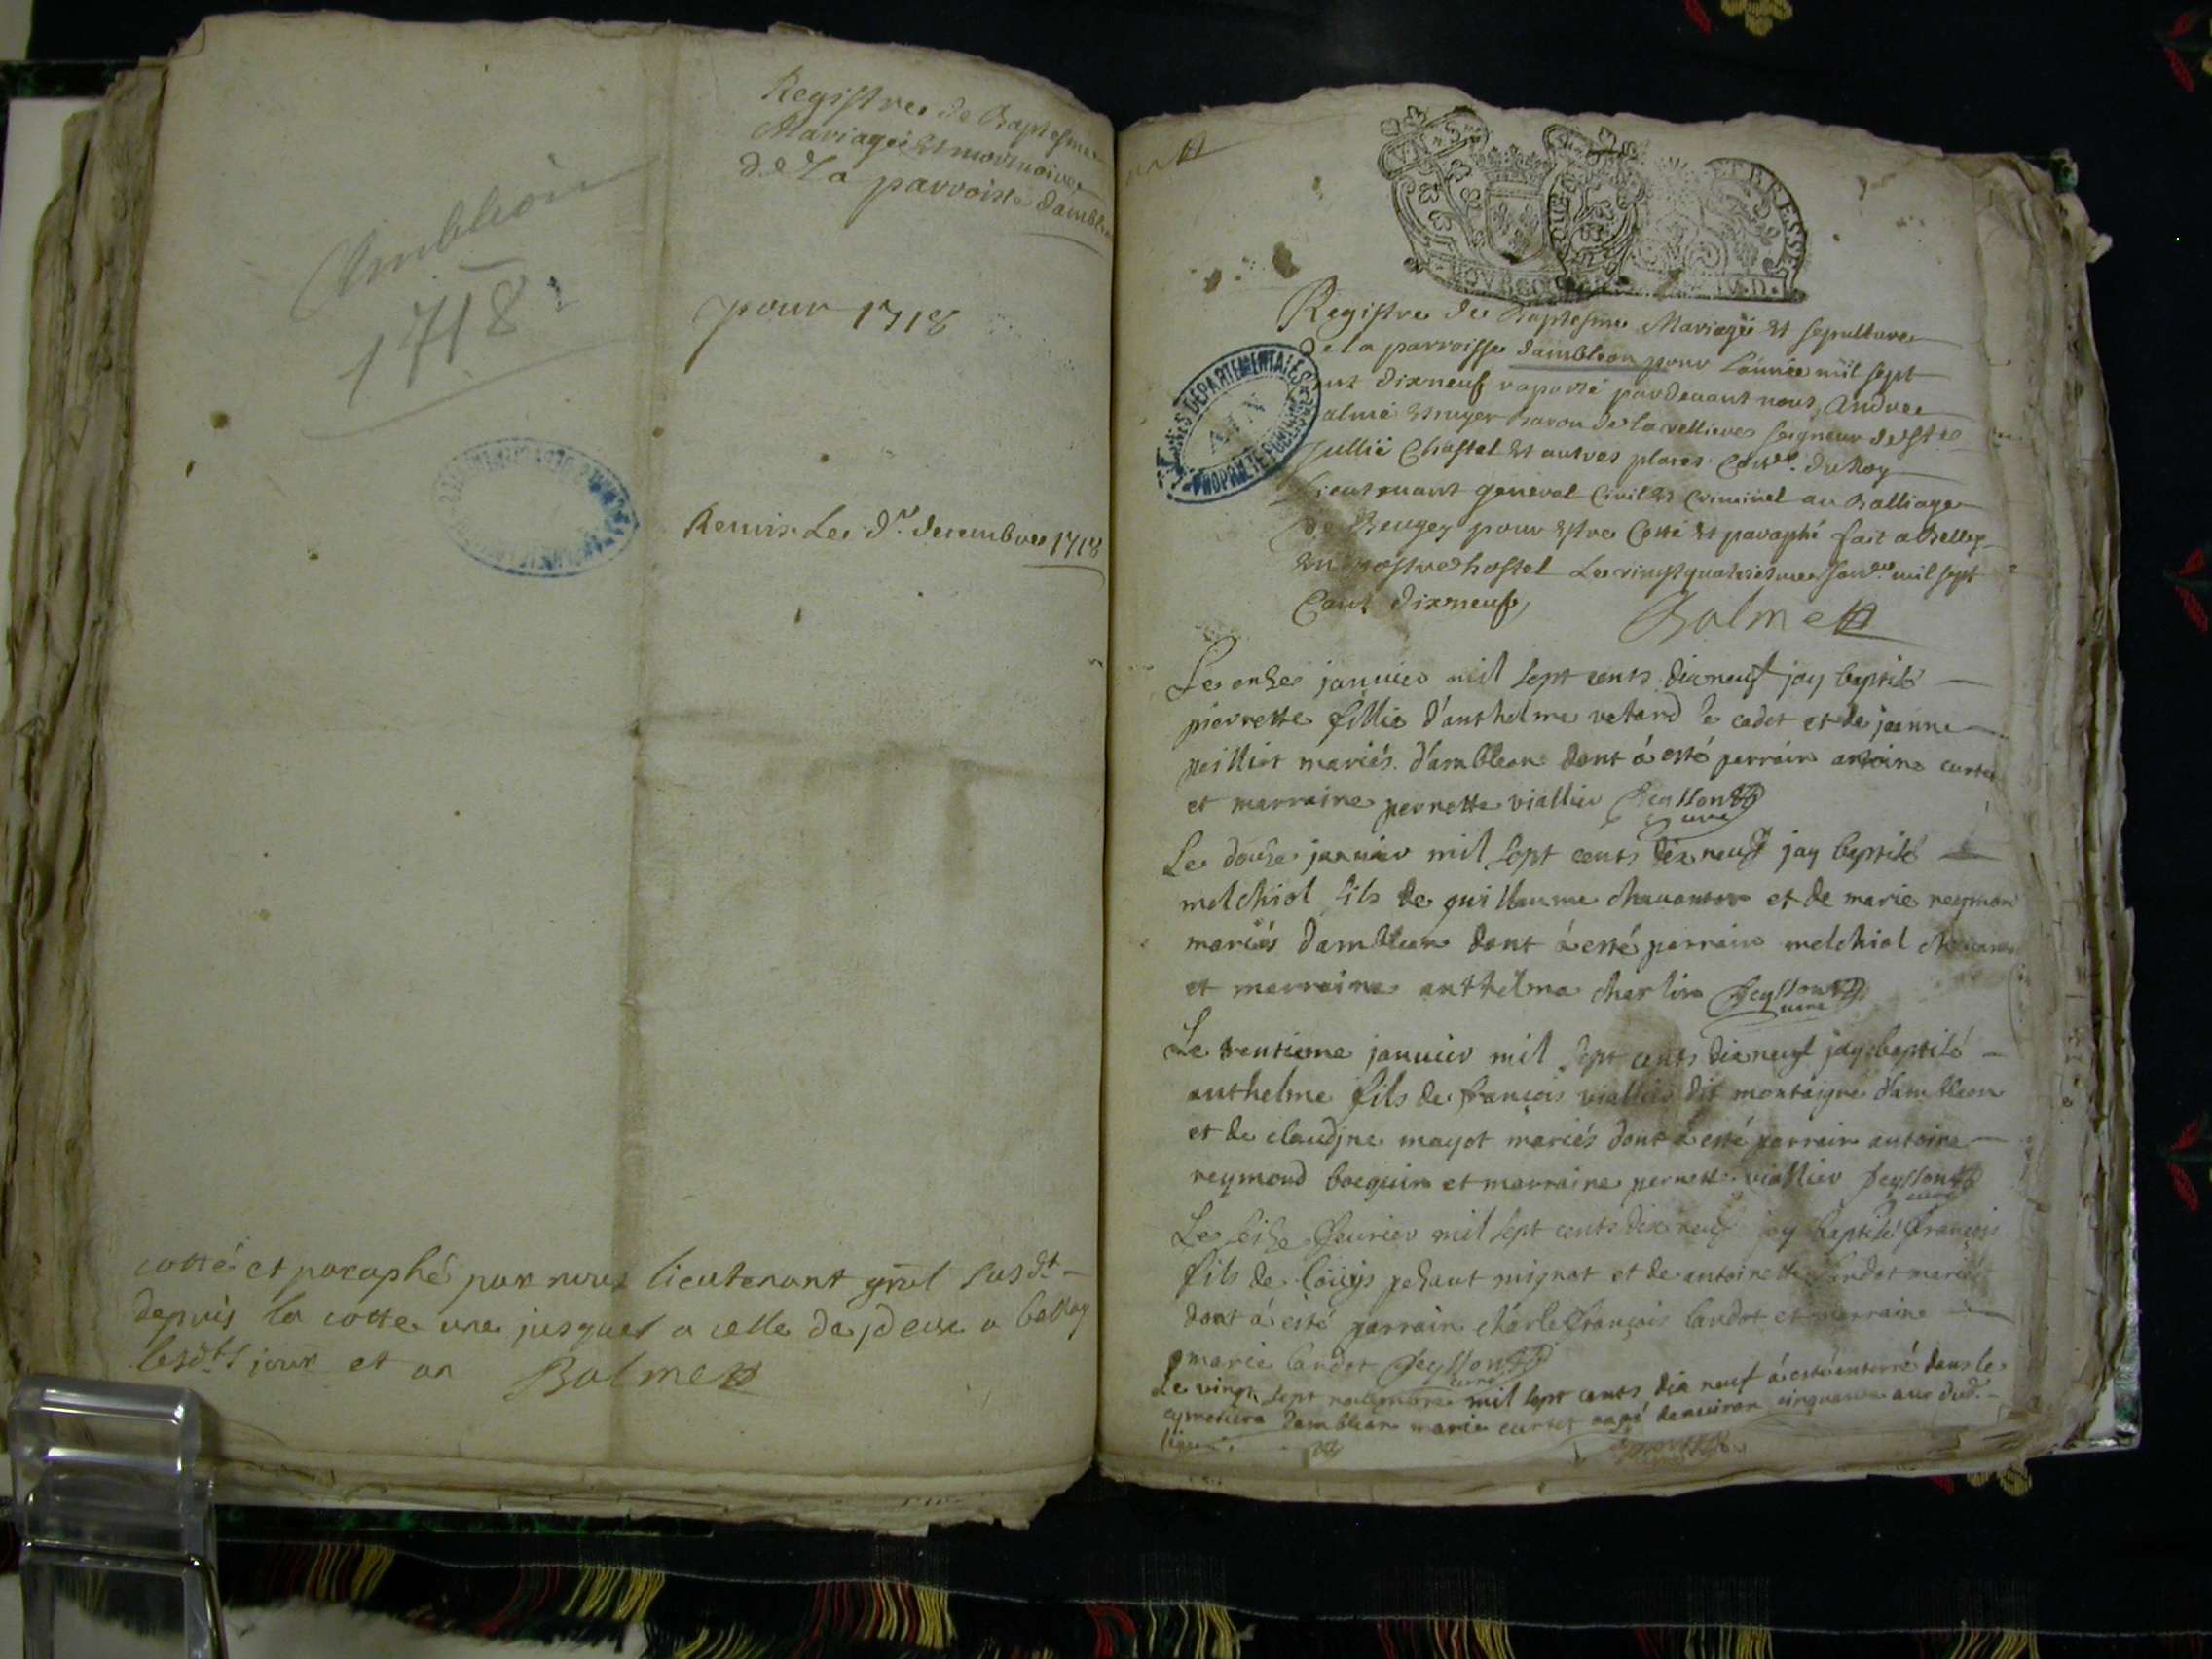 Registre de Baptesme
Mariage et mortuaire
de La parroisse dambleon
Ambleon
1718
pour 1718
Remis Le dr decembre 1718
cotté et paraphé par nous lieutenant gnal susdt
depuis la cotte une jusques a celle de deux a belley
lesdts jour et an Balme
ET BRESSE
Registre de Baptesme Mariage et sepulture
De la parroisse dambleon pour Lannée mil sept
cent dixneuf raporté pardevant nous Andre
Balme Baron de seigneur de Ste
Jullie Chastel et autres places Coner du Roy
Lieutenant general Civil et Criminel au Balliage
de Beugey pour estre Cotté et paraphé fait a Belley
en nostre hostel Le mil sept
Cent dixneuf
Balme
ARCHIVES DEPARTEMENTALES
AIN
PROPRIETE PUBLIQUE
Le onze janvier mil sept cents dixneuf jay baptisé
pierrette fillie d'anthelme vetard le cadet et de jeanne
peilliot mariés d'ambleon dont á esté perrain antoine curtet
et marraine pernette viallier Feysson
cure
Le douze janvier mil sept cents dix neuf jay baptisé
melchiol fils de guillaume et de marie reymond
mariés dambleon dont á esté perrain melchiol
et marraine anthelma charlin Feysson
cure
Le trentieme janvier mil sept cents dixneuf jay baptisé
anthelme fils de françois viallier dit montaigne d'ambleon
et de claudine mayot mariés dont á esté parrain antoine
reymond boequin et marraine pernette viallier Feysson
cure
Le seize feurier mil sept cents dix neuf jay baptisé françois
fils de Louys mignot et de antoinette landot mariés
dont á esté parrain charle françois landot et marraine
marie landot Feysson
cure
Le vingt sept mil sept cents dix neuf á esté enterré dans le
cymetiere dambleon marie curtet aagé denviron cinquante ans dud.
lieu